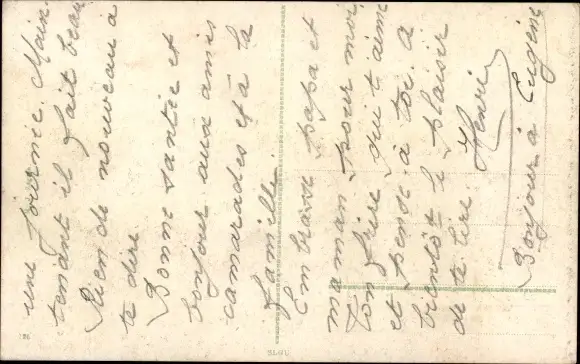 une journée. Main-
tenant il fait beau
Rien de nouveau à
te dire.
Bonne santée et
bonjour aux amis
camarades et à la
famille.
Embrasse papa et
maman pour moi
Ton frère qui t'aime
et pense à toi. A
bientôt le plaisir
de te lire.
Henri
Bonjour à Eugène